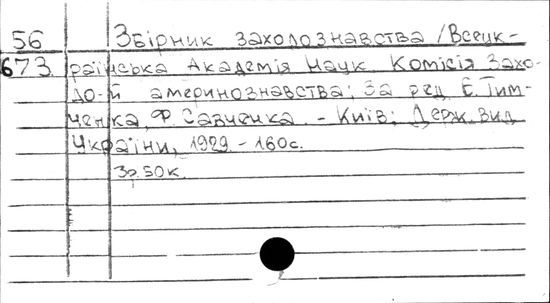 56 Збірник заходознавства / Всеук-
673 раїнська Академія Наук. Комісія Захо-
до-й америнознавства; За ред. Є. Тим-
ченка, Ф. Савченка. - Київ: Держ. вид.
України, 1929. - 160с.
3р.50к.